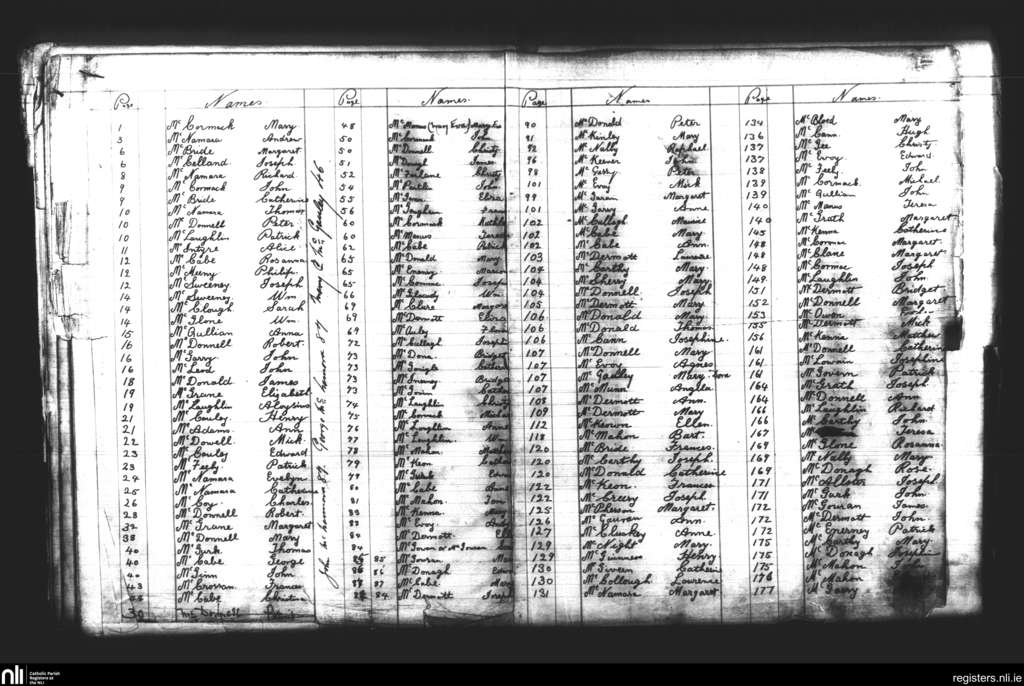 Page Names
1 Mc Cormack Mary
3 Mc Namara Andrew
6 Mc Bride Margaret
6 Mc Celland Joseph
8 Mc Namara Richard
9 Mc Cormack John
9 Mc Bride Catherine
10 Mc Namara Thomas
10 Mc Donnell Peter
10 Mc Laughlin Patrick
11 Mc Intyre Alice
12 Mc Cabe Rosanna
12 Mc Meeny Philip
12 Mc Sweeney Joseph
14 Mc Sweeney Wm
14 Mc Clough Sarah
14 Mc Glone Wm
15 Mc Quillian Anna
16 Mc Donnell Robert
16 Mc Garry John
16 Mc Leod John
18 Mc Donald James
19 Mc Grane Elizabeth
19 Mc Laughlin Aloysius
21 Mc Cauley Henry
21 Mc Adams Ann
22 Mc Dowell Mick
23 Mc Cauley Edward
23 Mc Feely Patrick
24 Mc Namara Evelyn
25 Mc Namara Catherine
26 Mc Coy Charles
28 Mc Donnell Robert
32 Mc Grane Margaret
38 Mc Donnell Mary
40 Mc Gurk Thomas
40 Mc Cabe George
40 Mc Ginn John
43 Mc Crossan Frances
Mc Cabe Christina
30 Mc Donnell
Page Names
48 Mc Manus Mary Eva
50 Mc Cormack John
50 Mc Dowell Christy
51 James
52 Mc Farlane Christy
54 John
55 Eliza
56
60 Mc Cormack
60 Mc Manus Teresa
62 Mc Cabe Patrick
65 Mc Donald Mary
65 Marion
65 Mc Cormac Joseph
66 Wm
69 Mc Clare
69 Mc Dermott Eliza
69 Mc Auley
72 Mc Cullagh Joseph
73 Bridget
73 Mc Gonigle
73
73 Peter
74 Mc Laughlin Christy
75 Mc Cormack Michael
76 Mc Loughlin Anne
77 Mc Laughlin Wm
78 Mc Mahon
79 Mc Keon
79 Mc Gurk
80 Mc Cabe
81 Mc Mahon Tom
83 Mc Kenna May
83 Mc Evoy
84 Mc Dermott
84 Mc Gowan or
85 Mc Govern
86 Mc Donagh Edward
87 Mc Cabe Mary
84 Mc Dermott Joseph
Page Names
90 Mc Donald Peter
91 Mc Kinley Mary
92 Mc Nally Raphael
96 Mc Keever John
98 Peter
101 Mc Evoy Mick
99 Margaret
101 Mc Garry Anne
102 Mc Cullagh Maurice
102 Mc Cabe Mary
102 Mc Cabe Ann
103 Mc Dermott Laurence
104 Mc Carthy Mary
104 Mc Sherry Mary
104 Mc Donnell Joseph
105 Mc Dermott Mary
106 Mc Donald Mary
106 Mc Donald Thomas
106 Mc Cann Josephine
107 Mc Donnell Mary
107 Mc Evoy Agnes
107 Mc Gealley Mary
107 Mc Munn Angela
108 Mc Dermott Ann
109 Mc Dermott Mary
112 Mc Keown Ellen
118 Mc Mahon Bart.
120 Mc Bride Frances
120 Mc Carthy Joseph
120 Mc Donald Catherine
122 Mc Keon Frances
122 Mc Creery Joseph
125 Mc Pherson Margaret
126 Mc Gauran Ann
127 Mc Cluskey Anne
129 Mc Night Mary
129 Mc Guinness Henry
130 Mc Giveen Catherine
130 Mc Collough Laurence
131 Mc Namara Margaret
Page Names
134 Mc Bloed Mary
136 Mc Cann Hugh
137 Mc Gee Christy
137 Mc Evoy Edward
138 Mc Feely John
139 Mc Cormack Michael
139 Mc Quillian John
140 Mc Manus Teresa
140 Mc Grath Margaret
145 Mc Kenna Catherine
148 Mc Cormac Margaret
148 Mc Clane Margaret
148 Mc Cormac Joseph
149 Mc Laughlin John
151 Mc Dermott Bridget
152 Mc Donnell Margaret
153 Mc Owen
155 Mc Dermott Mick
156 Mc Kenna
161 Mc Donnell Catherine
161 Mc Lowain Josephine
161 Mc Govern Patrick
164 Mc Grath Joseph
164 Mc Donnell Ann
166 Mc Laughlin Richard
166 Mc Carthy John
167 Mc Teresa
169 Mc Glone Rosanna
169 Mc Nally Mary
169 Mc Donagh Rose
171 Joseph
171 Mc Gurk John
172 Mc Gouran James
172 Mc Dermott John
172 Mc Enerney Patrick
175 Mc Carthy Mary
175 Mc Donagh Josephine
175 Mc Mahon John
176 Mc Mahon
177 Mc Garry
nli
Catholic Parish
Registers at
the NLI
registers.nli.ie